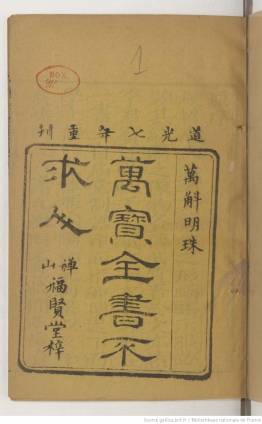 1
BOX
道光七年重刊
萬斛明珠
萬寶全書不
求人
禅山福賢堂梓
Source gallica.bnf.fr / Bibliothèque nationale de France